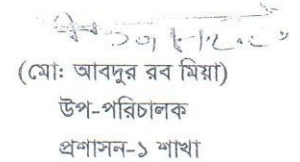 (মোঃ আবদুর রব মিয়া)
উপ-পরিচালক
প্রশাসন-১ শাখা